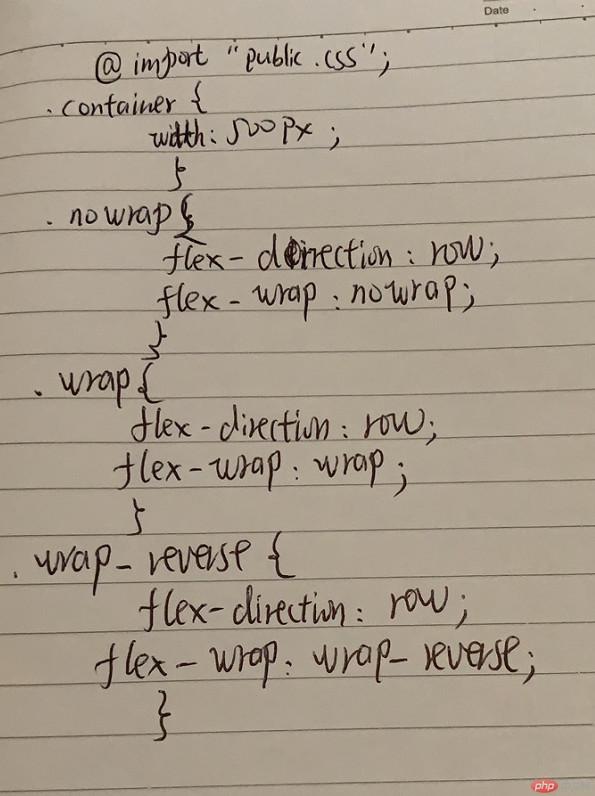 Date
@ import "public.css";
.container {
width: 500px;
}
.nowrap{
flex-direction: row;
flex-wrap: nowrap;
}
.wrap{
flex-direction: row;
flex-wrap: wrap;
}
.wrap-reverse {
flex-direction: row;
flex-wrap: wrap-reverse;
}
php